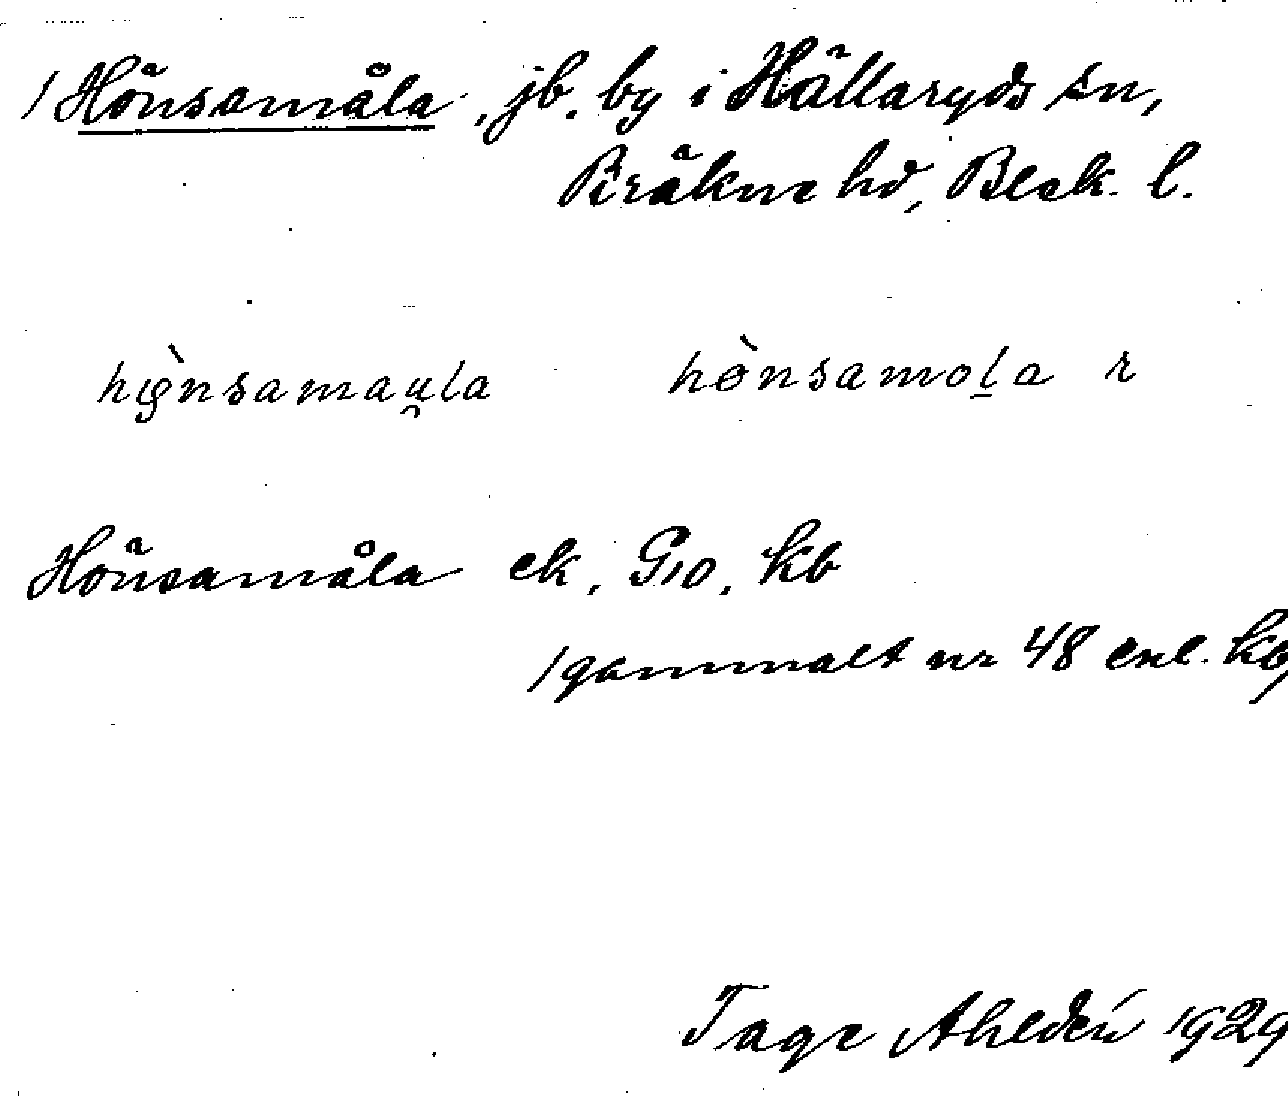 /Hönsamåla, jb. by i Hällaryds sn,
Bräkne hd, Blek. l.
hyǿ̀nsamau̯la hø̀nsamoḻa r
Hönsamåla ek, G10, Kb
/gammalt nr 48 enl. Kb/
Tage Ahldén 1929